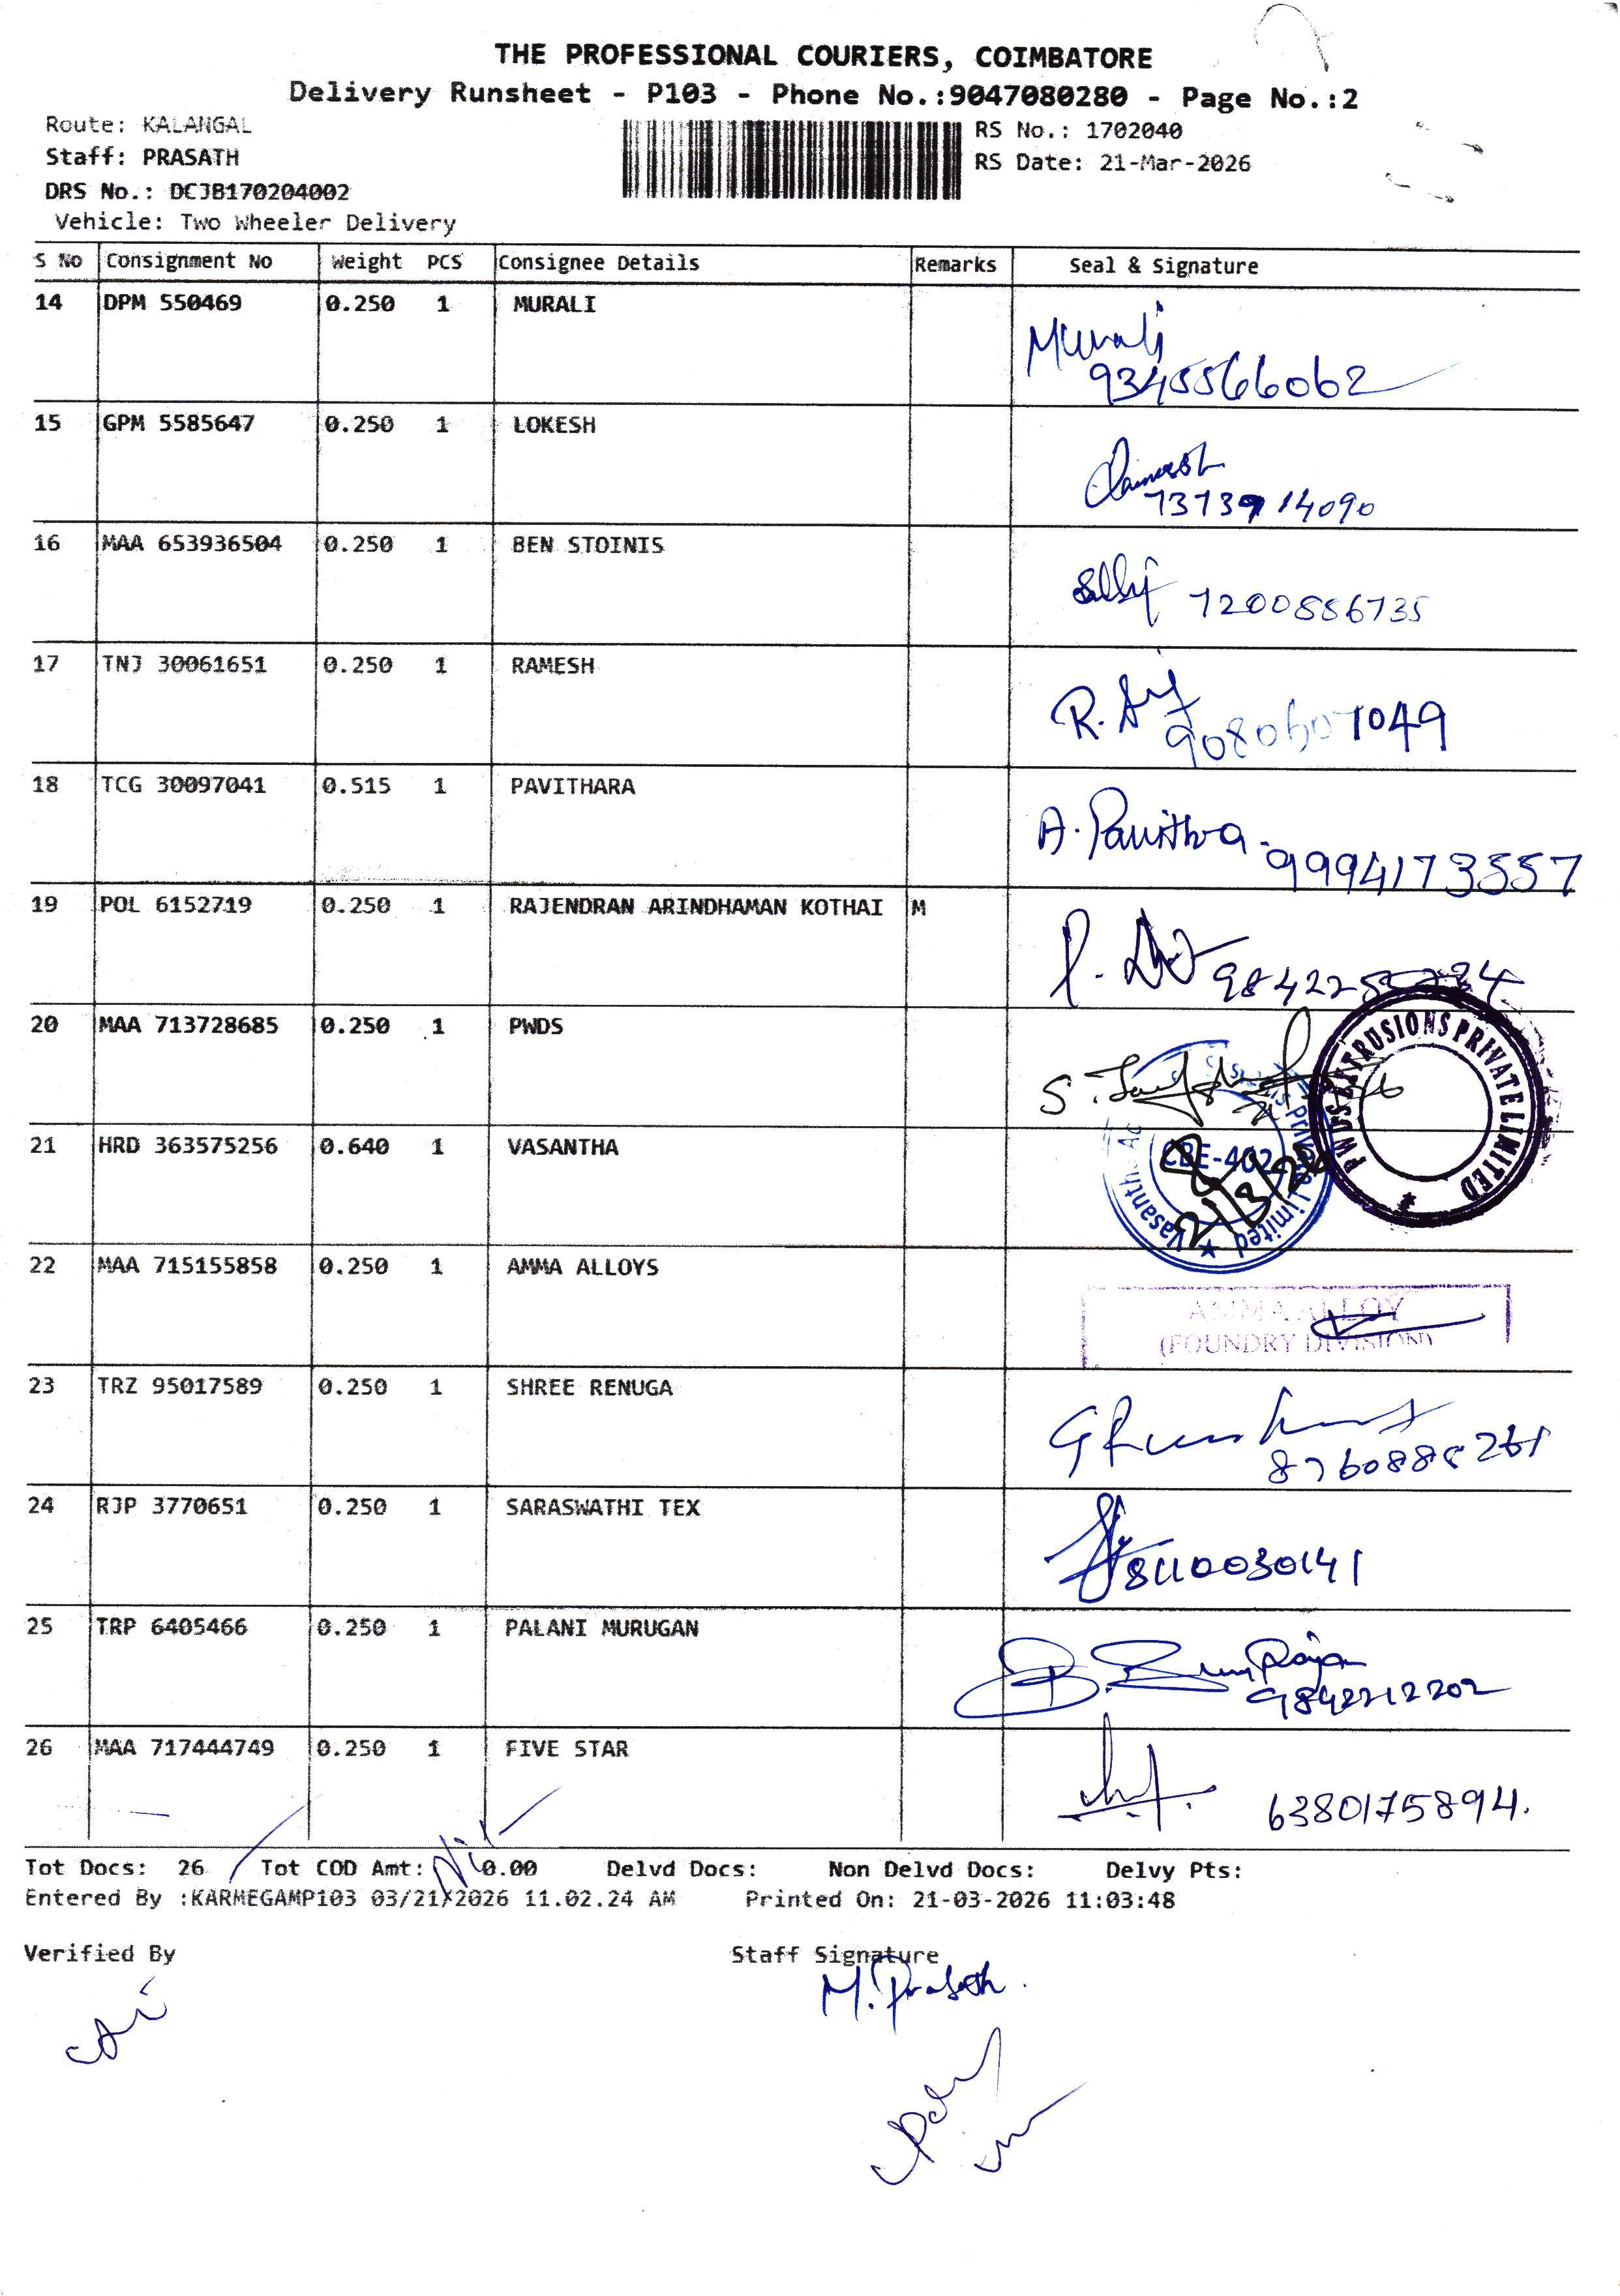 THE PROFESSIONAL COURIERS, COIMBATORE
Delivery Runsheet - P103 - Phone No.:9047080280 - Page No.:2
Route: KALANGAL
RS No.: 1702040
Staff: PRASATH
RS Date: 21-Mar-2026
DRS No.: DCJB170204002
Vehicle: Two Wheeler Delivery
S No Consignment No Weight PCS Consignee Details Remarks Seal & Signature
14 DPM 550469 0.250 1 MURALI
Murali
9345566062
15 GPM 5585647 0.250 1 LOKESH
7373914090
16 MAA 653936504 0.250 1 BEN STOINIS
7200886735
17 TNJ 30061651 0.250 1 RAMESH
9080607049
18 TCG 30097041 0.515 1 PAVITHARA
A. Pavithra
9994173557
19 POL 6152719 0.250 1 RAJENDRAN ARINDHAMAN KOTHAI M
20 MAA 713728685 0.250 1 PWDS
PWDS EXTRUSIONS PRIVATE LIMITED
21 HRD 363575256 0.640 1 VASANTHA
CBE-402
Private Limited
21/3/26
22 MAA 715155858 0.250 1 AMMA ALLOYS
AMMA ALLOY
(FOUNDRY DIVISION)
23 TRZ 95017589 0.250 1 SHREE RENUGA
8760888261
24 RJP 3770651 0.250 1 SARASWATHI TEX
8110030141
25 TRP 6405466 0.250 1 PALANI MURUGAN
9842212202
26 MAA 717444749 0.250 1 FIVE STAR
6380175894.
Nil
Tot Docs: 26 Tot COD Amt: 0.00 Delvd Docs: Non Delvd Docs: Delvy Pts:
Entered By :KARMEGAMP103 03/21/2026 11.02.24 AM Printed On: 21-03-2026 11:03:48
Verified By Staff Signature
M. Prasath.